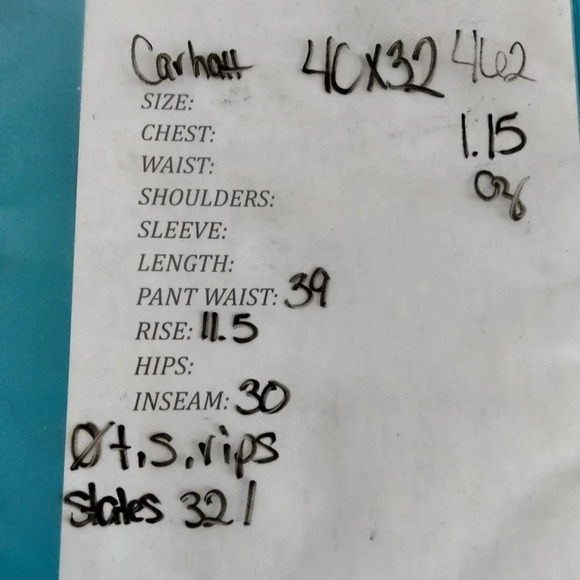 Carhatt 40x32 462
SIZE:
CHEST: 1.15
WAIST: Oz
SHOULDERS:
SLEEVE:
LENGTH:
PANT WAIST: 39
RISE: 11.5
HIPS:
INSEAM: 30
Øt.s.rips
states 32 l